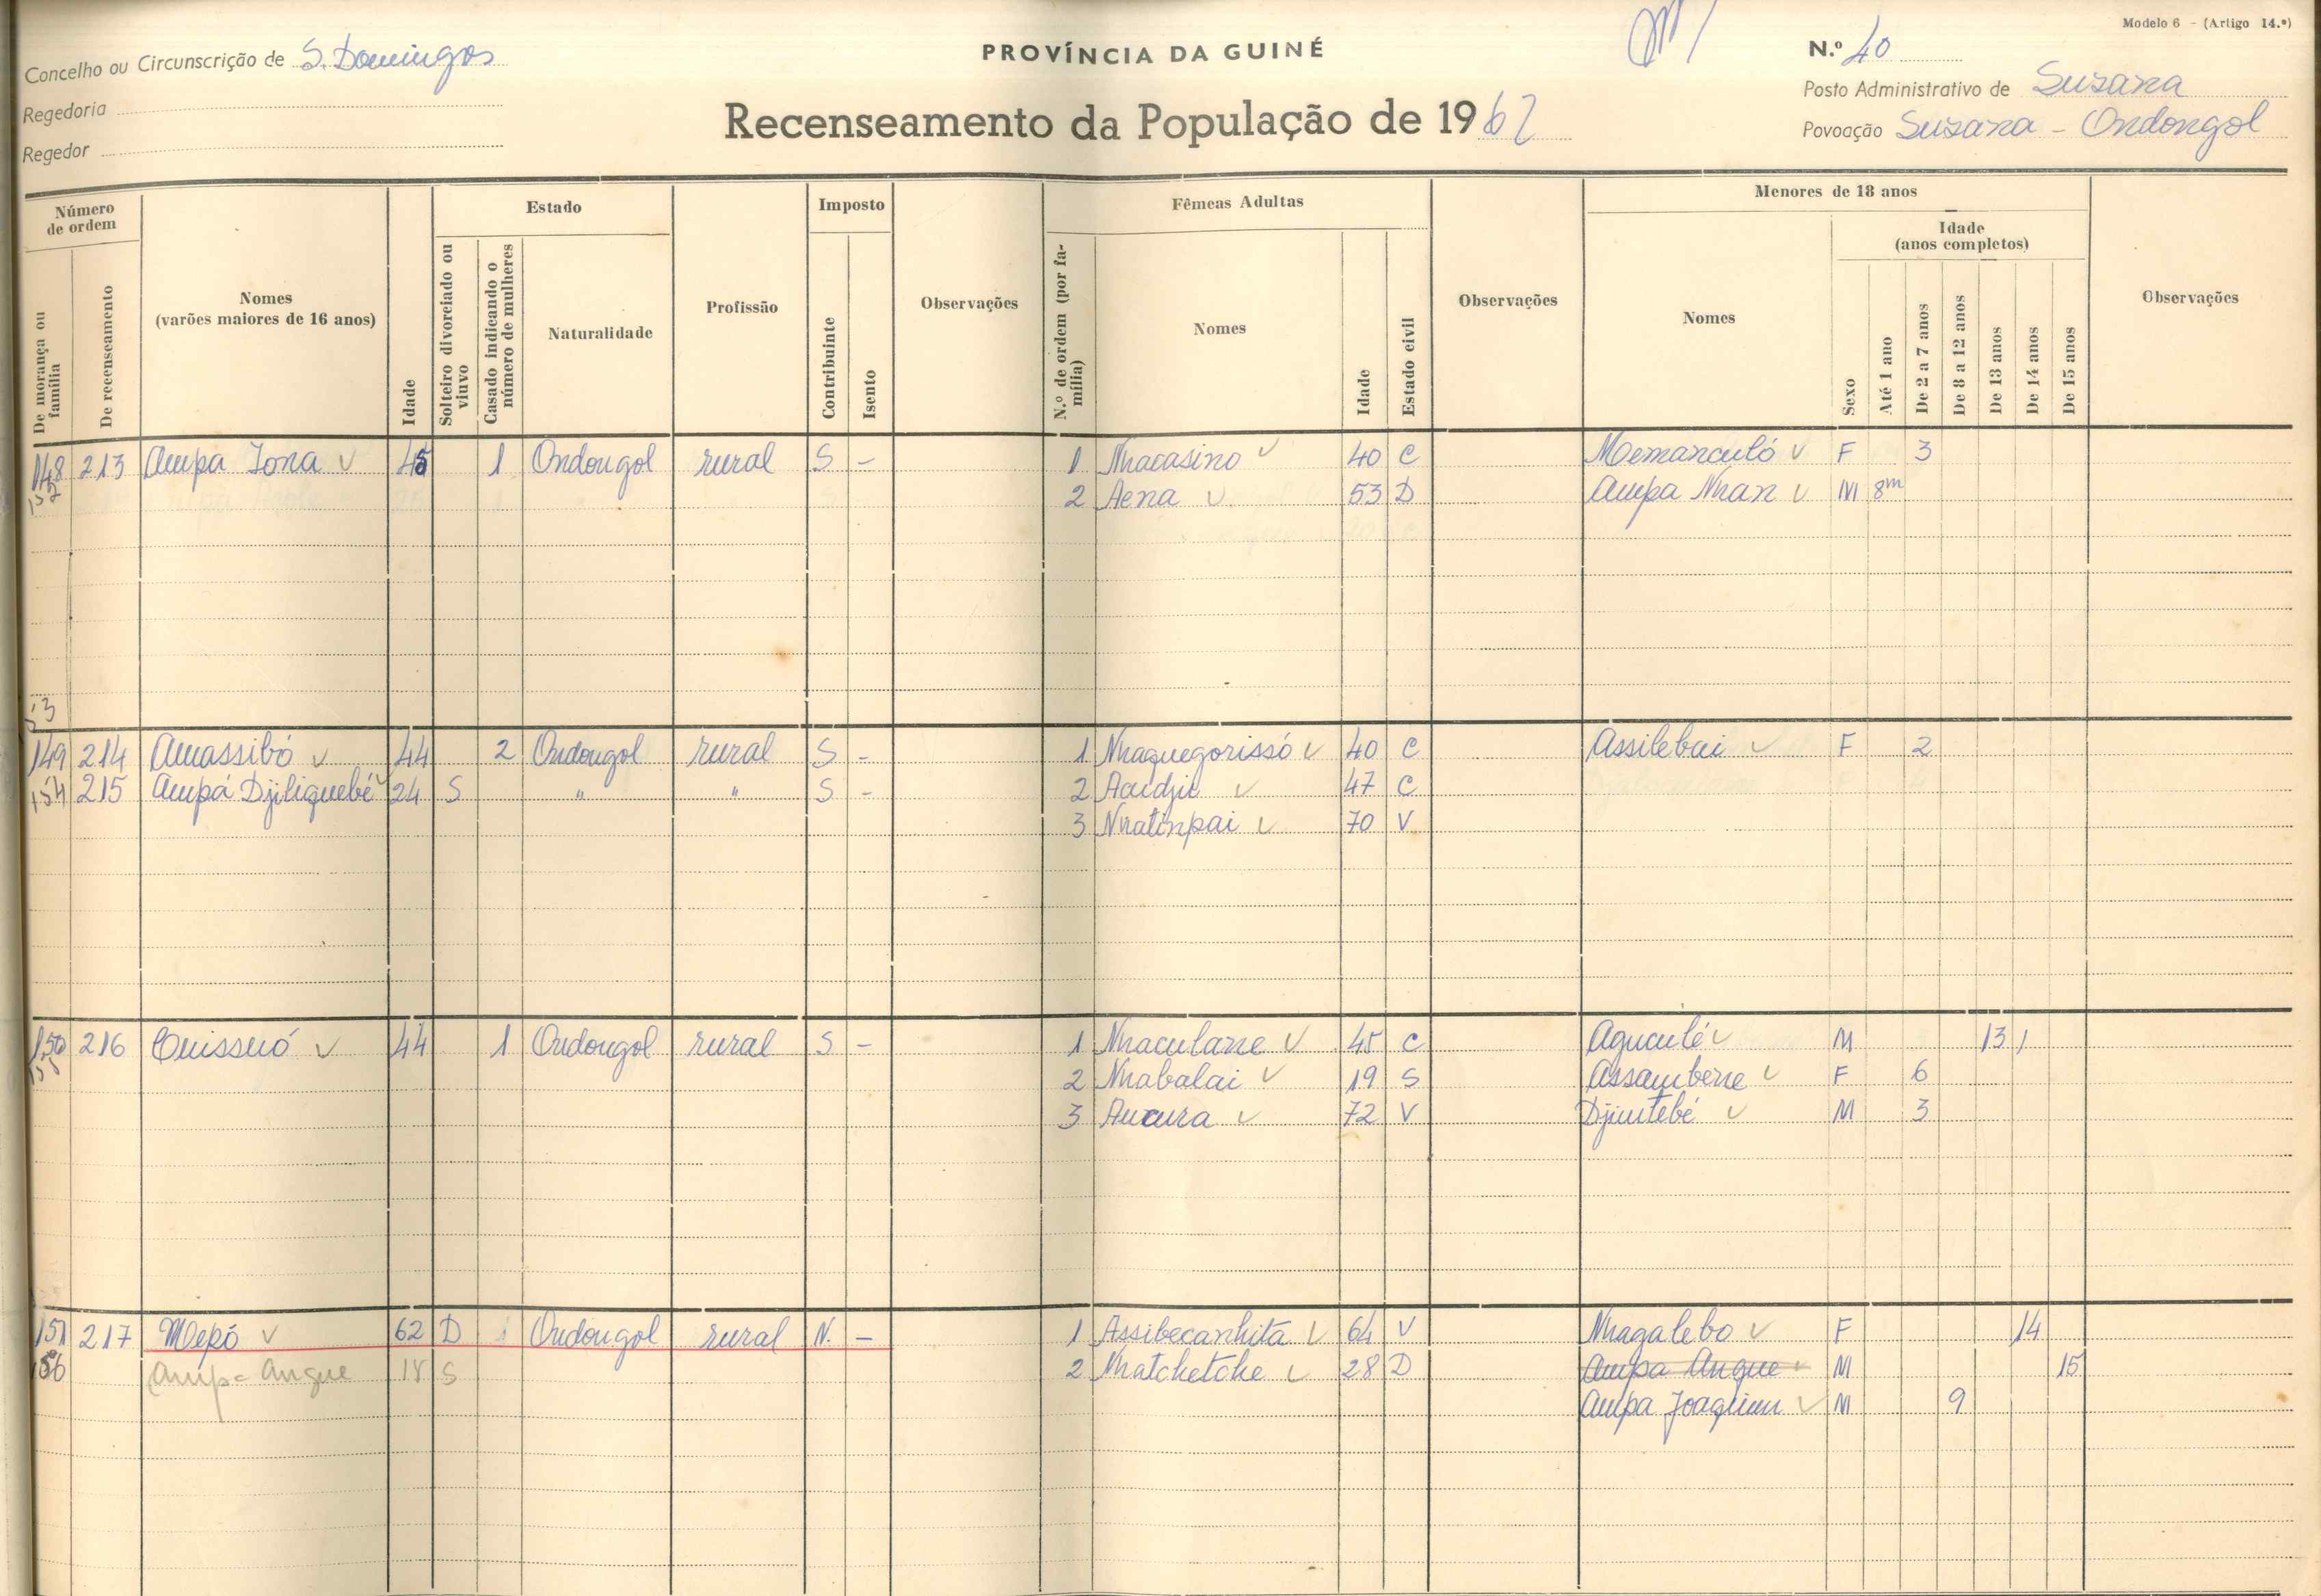 Modelo 6 - (Artigo 14.º)
Concelho ou Circunscrição de S. Domingos
PROVÍNCIA DA GUINÉ
N.º 40
Regedoria
Posto Administrativo de Suzana
Regedor
Recenseamento da População de 1962
Povoação Suzana - Ondongol
Número de ordem
De morança ou família
De recenseamento
Nomes
(varões maiores de 16 anos)
Idade
Estado
Solteiro divorciado ou viuvo
Casado indicando o número de mulheres
Naturalidade
Profissão
Imposto
Contribuinte
Isento
Observações
Fêmeas Adultas
N.º de ordem (por família)
Nomes
Idade
Estado civil
Observações
Menores de 18 anos
Nomes
Idade
(anos completos)
Sexo
Até 1 ano
De 2 a 7 anos
De 8 a 12 anos
De 13 anos
De 14 anos
De 15 anos
Observações
148 213 Ampa Iona 45 1 Ondongol rural S - 1 Nhacasino 40 C Memanculó F 3
152 2 Aena 53 D Ampa Nhan M 8m
53
149 214 Amassibó 44 2 Ondongol rural S - 1 Nhaquegorissó 40 C Assilebai F 2
154 215 Ampá Djiliguebé 24 S " " S - 2 Aaidjie 47 C
3 Nhatinpai 70 V
150 216 Cuissuó 44 1 Ondongol rural S - 1 Nhaculane 45 C Aguculé M 13
155 2 Nhabalai 19 S Assambene F 6
3 Aucura 72 V Djiutebé M 3
151 217 Mepó 62 D Ondongol rural N. - 1 Assibecanhita 64 V Nhagalebo F 14
156 Ampa Angue 18 S 2 Nhatchetche 28 D Ampa Angue M 15
Ampa Joaquim M 9